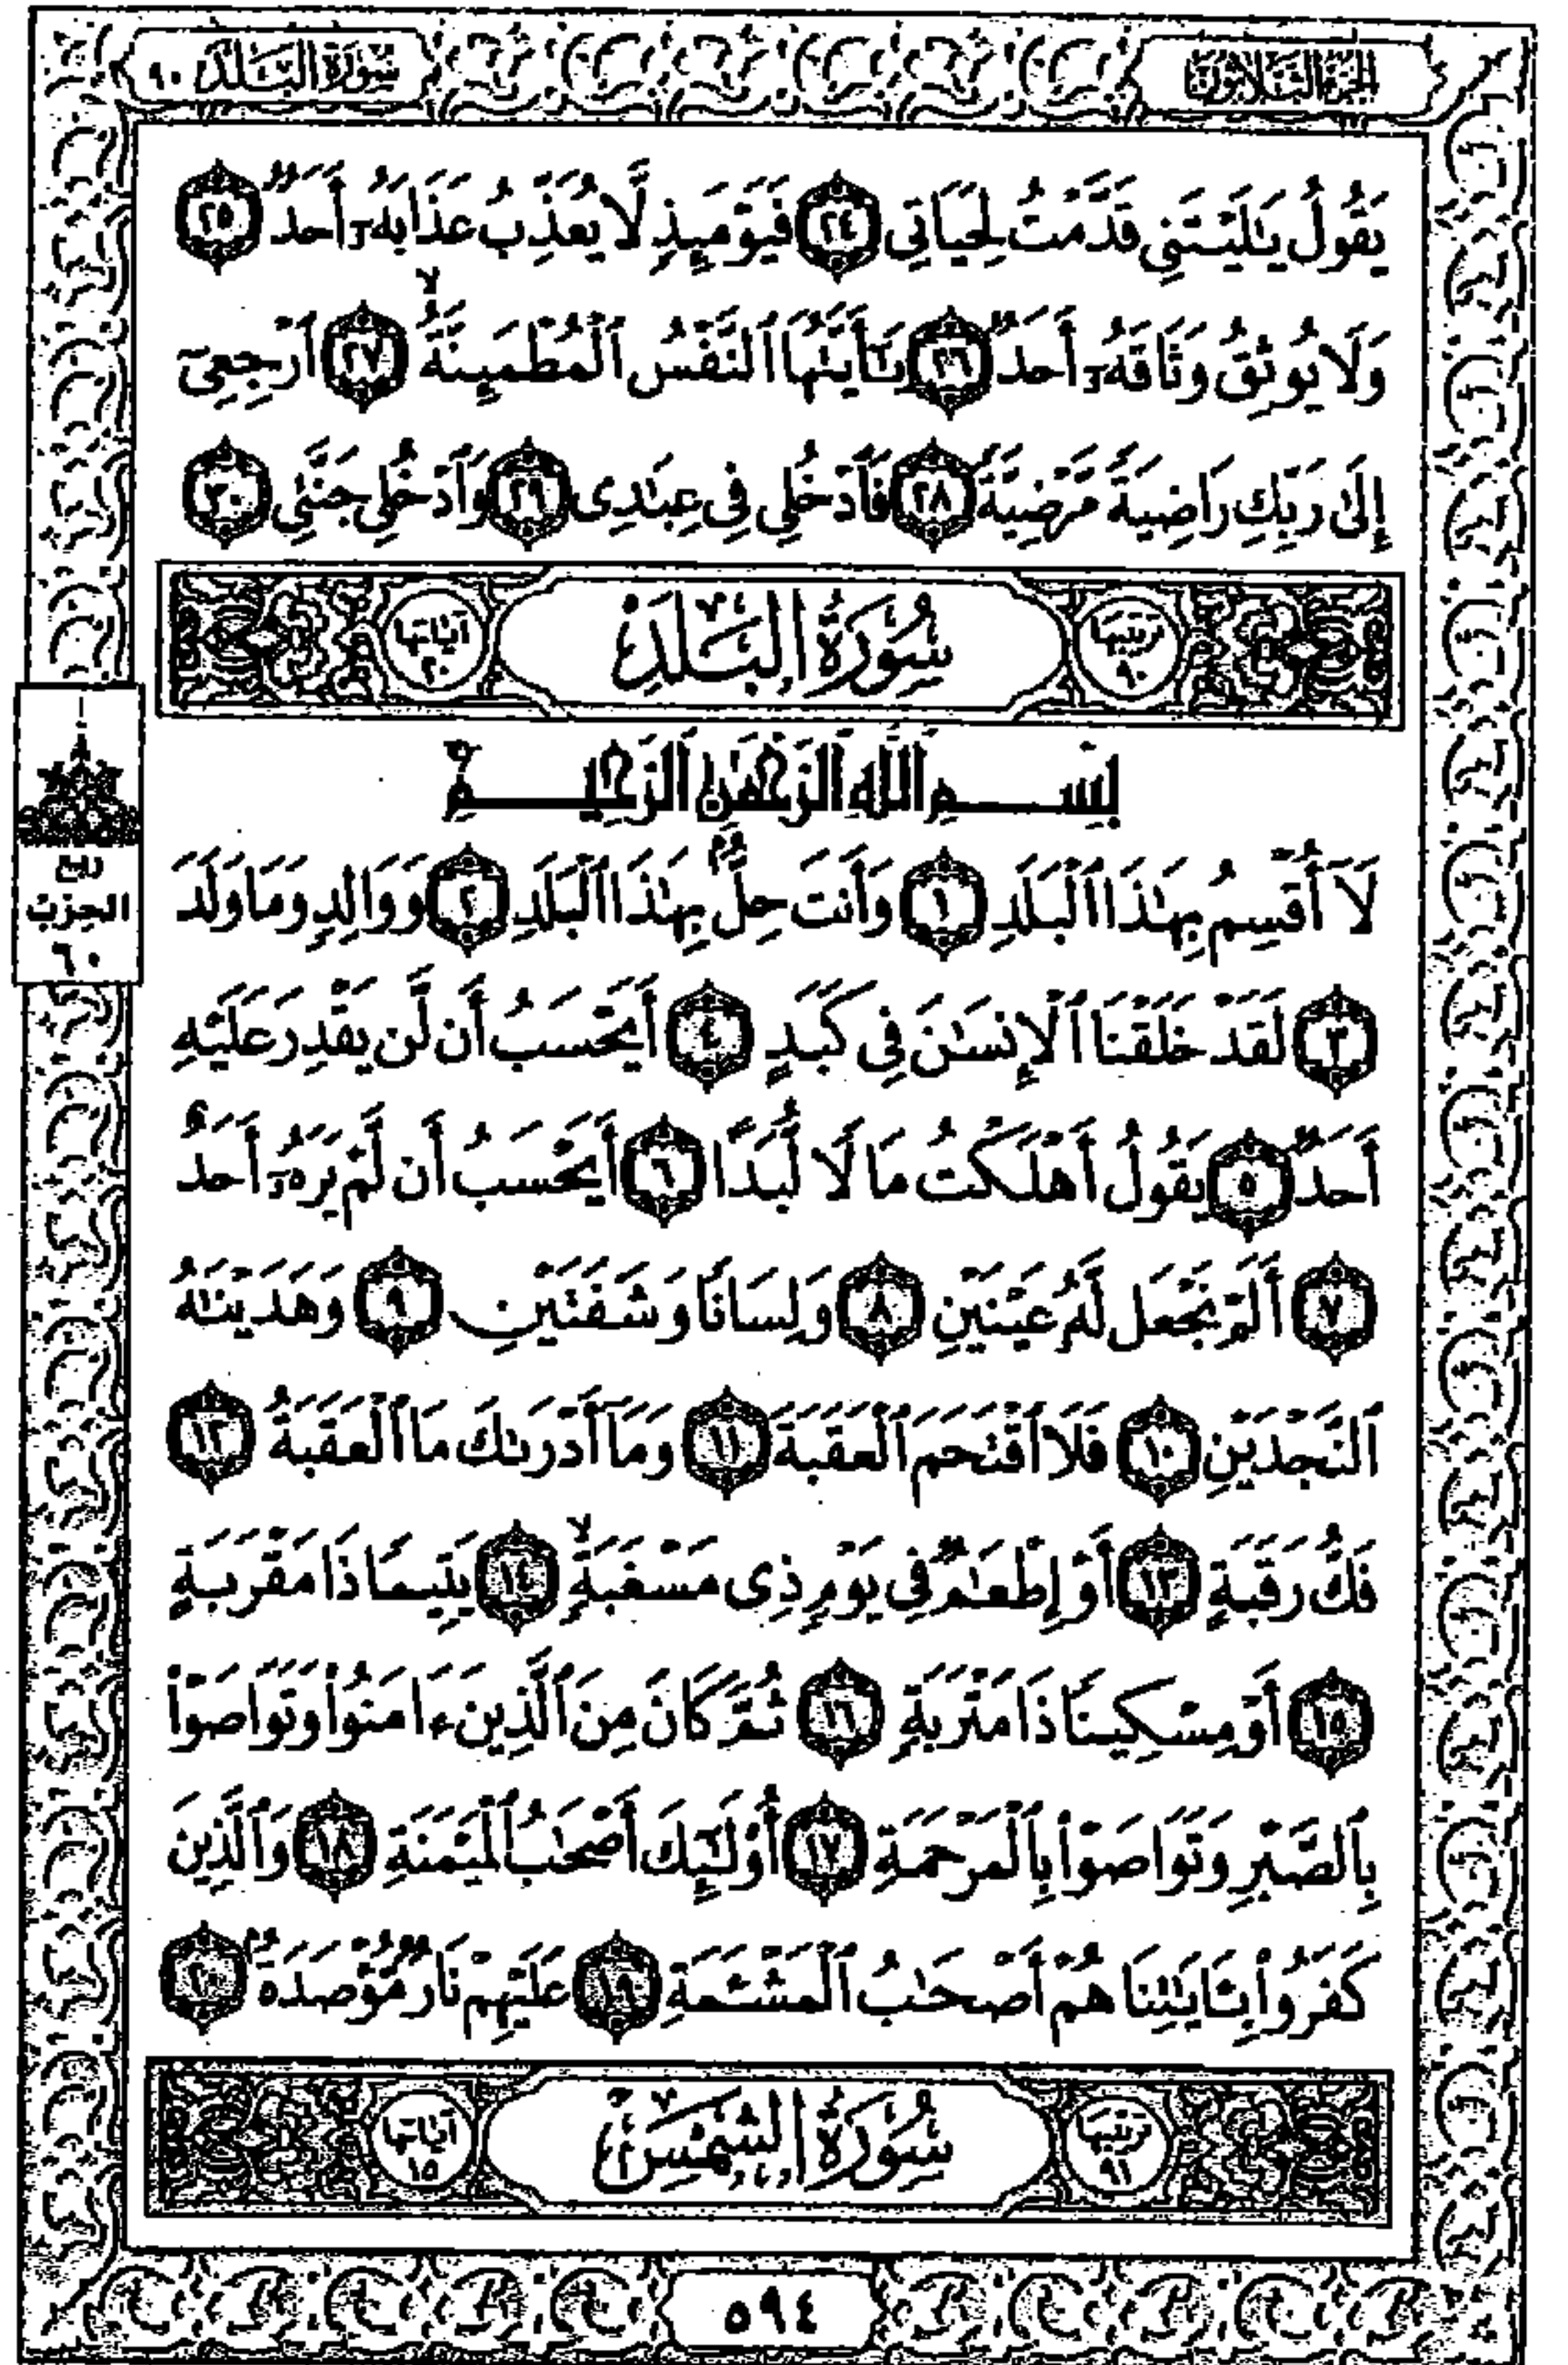 الجزء الثلاثون
سورة البلد ٩٠
يَقُولُ يَٰلَيْتَنِي قَدَّمْتُ لِحَيَاتِي ٢٤ فَيَوْمَئِذٍ لَّا يُعَذِّبُ عَذَابَهُۥٓ أَحَدٌ ٢٥
وَلَا يُوثِقُ وَثَاقَهُۥٓ أَحَدٌ ٢٦ يَٰٓأَيَّتُهَا ٱلنَّفْسُ ٱلْمُطْمَئِنَّةُ ٢٧ ٱرْجِعِىٓ
إِلَىٰ رَبِّكِ رَاضِيَةً مَّرْضِيَّةً ٢٨ فَٱدْخُلِي فِي عِبَٰدِي ٢٩ وَٱدْخُلِي جَنَّتِي ٣٠
ترتيبها ٩٠ سُورَةُ الْبَلَدِ آياتها ٢٠
بِسْمِ ٱللَّهِ ٱلرَّحْمَٰنِ ٱلرَّحِيمِ
لَآ أُقْسِمُ بِهَٰذَا ٱلْبَلَدِ ١ وَأَنتَ حِلٌّۢ بِهَٰذَا ٱلْبَلَدِ ٢ وَوَالِدٍ وَمَا وَلَدَ
٣ لَقَدْ خَلَقْنَا ٱلْإِنسَٰنَ فِي كَبَدٍ ٤ أَيَحْسَبُ أَن لَّن يَقْدِرَ عَلَيْهِ
أَحَدٌ ٥ يَقُولُ أَهْلَكْتُ مَالًا لُّبَدًا ٦ أَيَحْسَبُ أَن لَّمْ يَرَهُۥٓ أَحَدٌ
٧ أَلَمْ نَجْعَل لَّهُۥ عَيْنَيْنِ ٨ وَلِسَانًا وَشَفَتَيْنِ ٩ وَهَدَيْنَٰهُ
ٱلنَّجْدَيْنِ ١٠ فَلَا ٱقْتَحَمَ ٱلْعَقَبَةَ ١١ وَمَآ أَدْرَىٰكَ مَا ٱلْعَقَبَةُ ١٢
فَكُّ رَقَبَةٍ ١٣ أَوْ إِطْعَٰمٌ فِي يَوْمٍ ذِي مَسْغَبَةٍ ١٤ يَتِيمًا ذَا مَقْرَبَةٍ
١٥ أَوْ مِسْكِينًا ذَا مَتْرَبَةٍ ١٦ ثُمَّ كَانَ مِنَ ٱلَّذِينَ ءَامَنُوا۟ وَتَوَاصَوْا۟
بِٱلصَّبْرِ وَتَوَاصَوْا۟ بِٱلْمَرْحَمَةِ ١٧ أُو۟لَٰٓئِكَ أَصْحَٰبُ ٱلْمَيْمَنَةِ ١٨ وَٱلَّذِينَ
كَفَرُوا۟ بِـَٔايَٰتِنَا هُمْ أَصْحَٰبُ ٱلْمَشْـَٔمَةِ ١٩ عَلَيْهِمْ نَارٌ مُّؤْصَدَةٌۢ ٢٠
ترتيبها ٩١ سُورَةُ الشَّمْسِ آياتها ١٥
ربع
الحزب
٦٠
٥٩٤